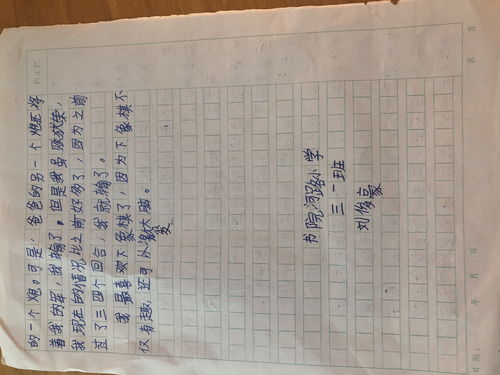 的一个炮。可是,爸爸的另一个炮还将
着我的军,我输了。但是我虽败犹荣,
我现在的情况比之前好多了,因为之前
过了三四个回合,我就输了。
我最喜欢下象棋了,因为下象棋不
仅有趣,还可以激发大脑。
书院河路小学
三二班
刘俊言
蒙
日期: 年 月 日 第 页